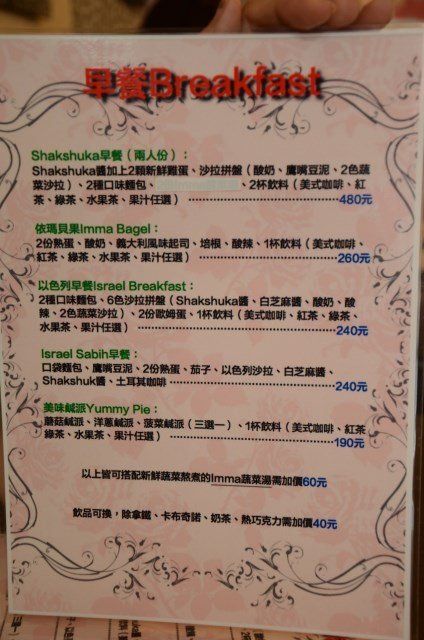 早餐Breakfast
Shakshuka早餐（兩人份）：
Shakshuka醬加上2顆新鮮雞蛋、沙拉拼盤（酸奶、鷹嘴豆泥、2色蔬
菜沙拉）、2種口味麵包、 、2杯飲料（美式咖啡、紅
茶、綠茶、水果茶、果汁任選） 480元
依瑪貝果Imma Bagel：
2份熟蛋、酸奶、義大利風味起司、培根、酸辣、1杯飲料（美式咖啡、
紅茶、綠茶、水果茶、果汁任選） 260元
以色列早餐Israel Breakfast：
2種口味麵包、6色沙拉拼盤（Shakshuka醬、白芝麻醬、酸奶、酸
辣、2色蔬菜沙拉）、2份歐姆蛋、1杯飲料（美式咖啡、紅茶、綠茶、
水果茶、果汁任選） 240元
Israel Sabih早餐：
口袋麵包、鷹嘴豆泥、2份熟蛋、茄子、以色列沙拉、白芝麻醬、
Shakshuk醬、土耳其咖啡 240元
美味鹹派Yummy Pie：
蘑菇鹹派、洋蔥鹹派、菠菜鹹派（三選一）、1杯飲料（美式咖啡、紅茶
綠茶、水果茶、果汁任選） 190元
以上皆可搭配新鮮蔬菜熬煮的Imma蔬菜湯需加價60元
飲品可換，除拿鐵、卡布奇諾、奶茶、熱巧克力需加價40元